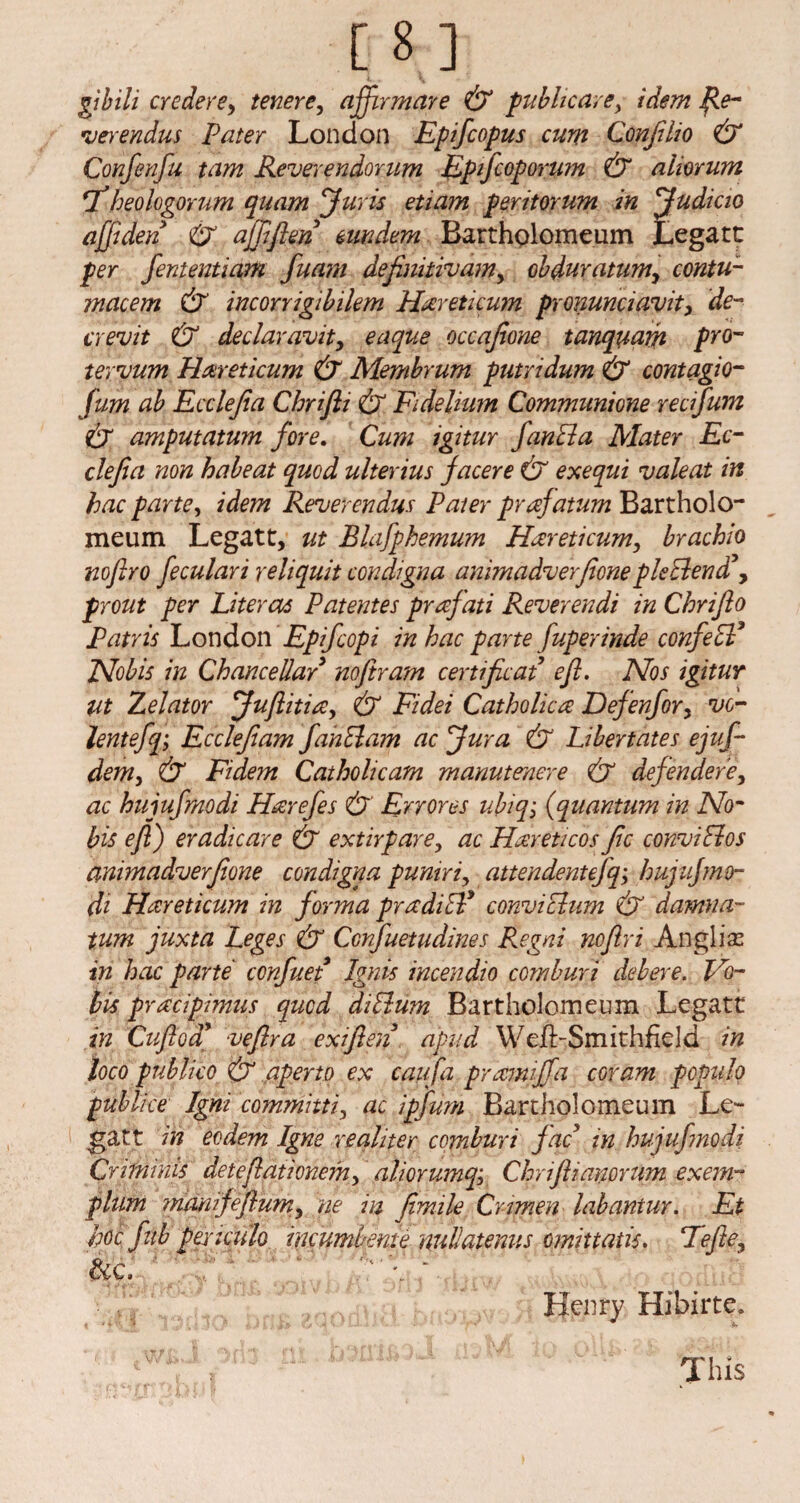 [ 8 ]
gibili credere, tenere, affirmare & publicare, idem Re-
verendus Pater London Epiſcopus cum Conſilio &
Conſenſu tam Reverendorum Epiſcoporum & aliorum
Theologorum quam Juris etiam peritorum in Judicio
aſſiden' & aſſiſten' eundem Bartholomeum Legatt
per ſententiam ſuam definitivam, obduratum, contu-
macem & incorrigibilem Hæreticum pronunciavit, de-
crevit & declaravit, eaque occaſione tanquam pro-
tervum Hæreticum & Membrum putridum & contagio-
ſum ab Eccleſia Chriſti & Fidelium Communione reciſum
& amputatum fore. Cum igitur ſancta Mater Ec-
cleſia non habeat quod ulterius facere & exequi valeat in
hac parte, idem Reverendus Pater præfatum Bartholo-
meum Legatt, ut Blaſphemum Hæreticum, brachio
noſtro ſeculari reliquit condigna animadverſione plectend',
prout per Literas Patentes præfati Reverendi in Chriſto
Patris London Epiſcopi in hac parte ſuperinde confect'
Nobis in Chancellar' noſtram certificat' eſt. Nos igitur
ut Zelator Juſtitiæ, & Fidei Catholicæ Defenſor, vo-
lenteſq; Eccleſiam ſanctam ac Jura & Libertates ejuſ-
dem, & Fidem Catholicam manutenere & defendere,
ac hujuſmodi Hæreſes & Errores ubiq; (quantum in No-
bis eſt) eradicare & extirpare, ac Hæreticos ſic convictos
animadverſione condigna puniri, attendenteſq; hujuſmo-
di Hæreticum in forma prædict' convictum & damna-
tum juxta Leges & Conſuetudines Regni noſtri Angliæ
in hac parte conſuet' Ignis incendio comburi debere. Vo-
bis præcipimus quod dictum Bartholomeum Legatt
in Cuſtod' veſtra exiſten' apud Weſt-Smithfield in
loco publico & aperto ex cauſa præmiſſa coram populo
publice Igni committi, ac ipſum Bartholomeum Le-
gatt in eodem Igne realiter comburi fac' in hujuſmodi
Criminis deteſtationem, aliorumq; Chriſtianorum exem-
plum manifeſtum, ne in ſimile Crimen labantur. Et
hoc ſub periculo incumbente nullatenus omittatis. Teſte,
&c.
Henry Hibirte.
This